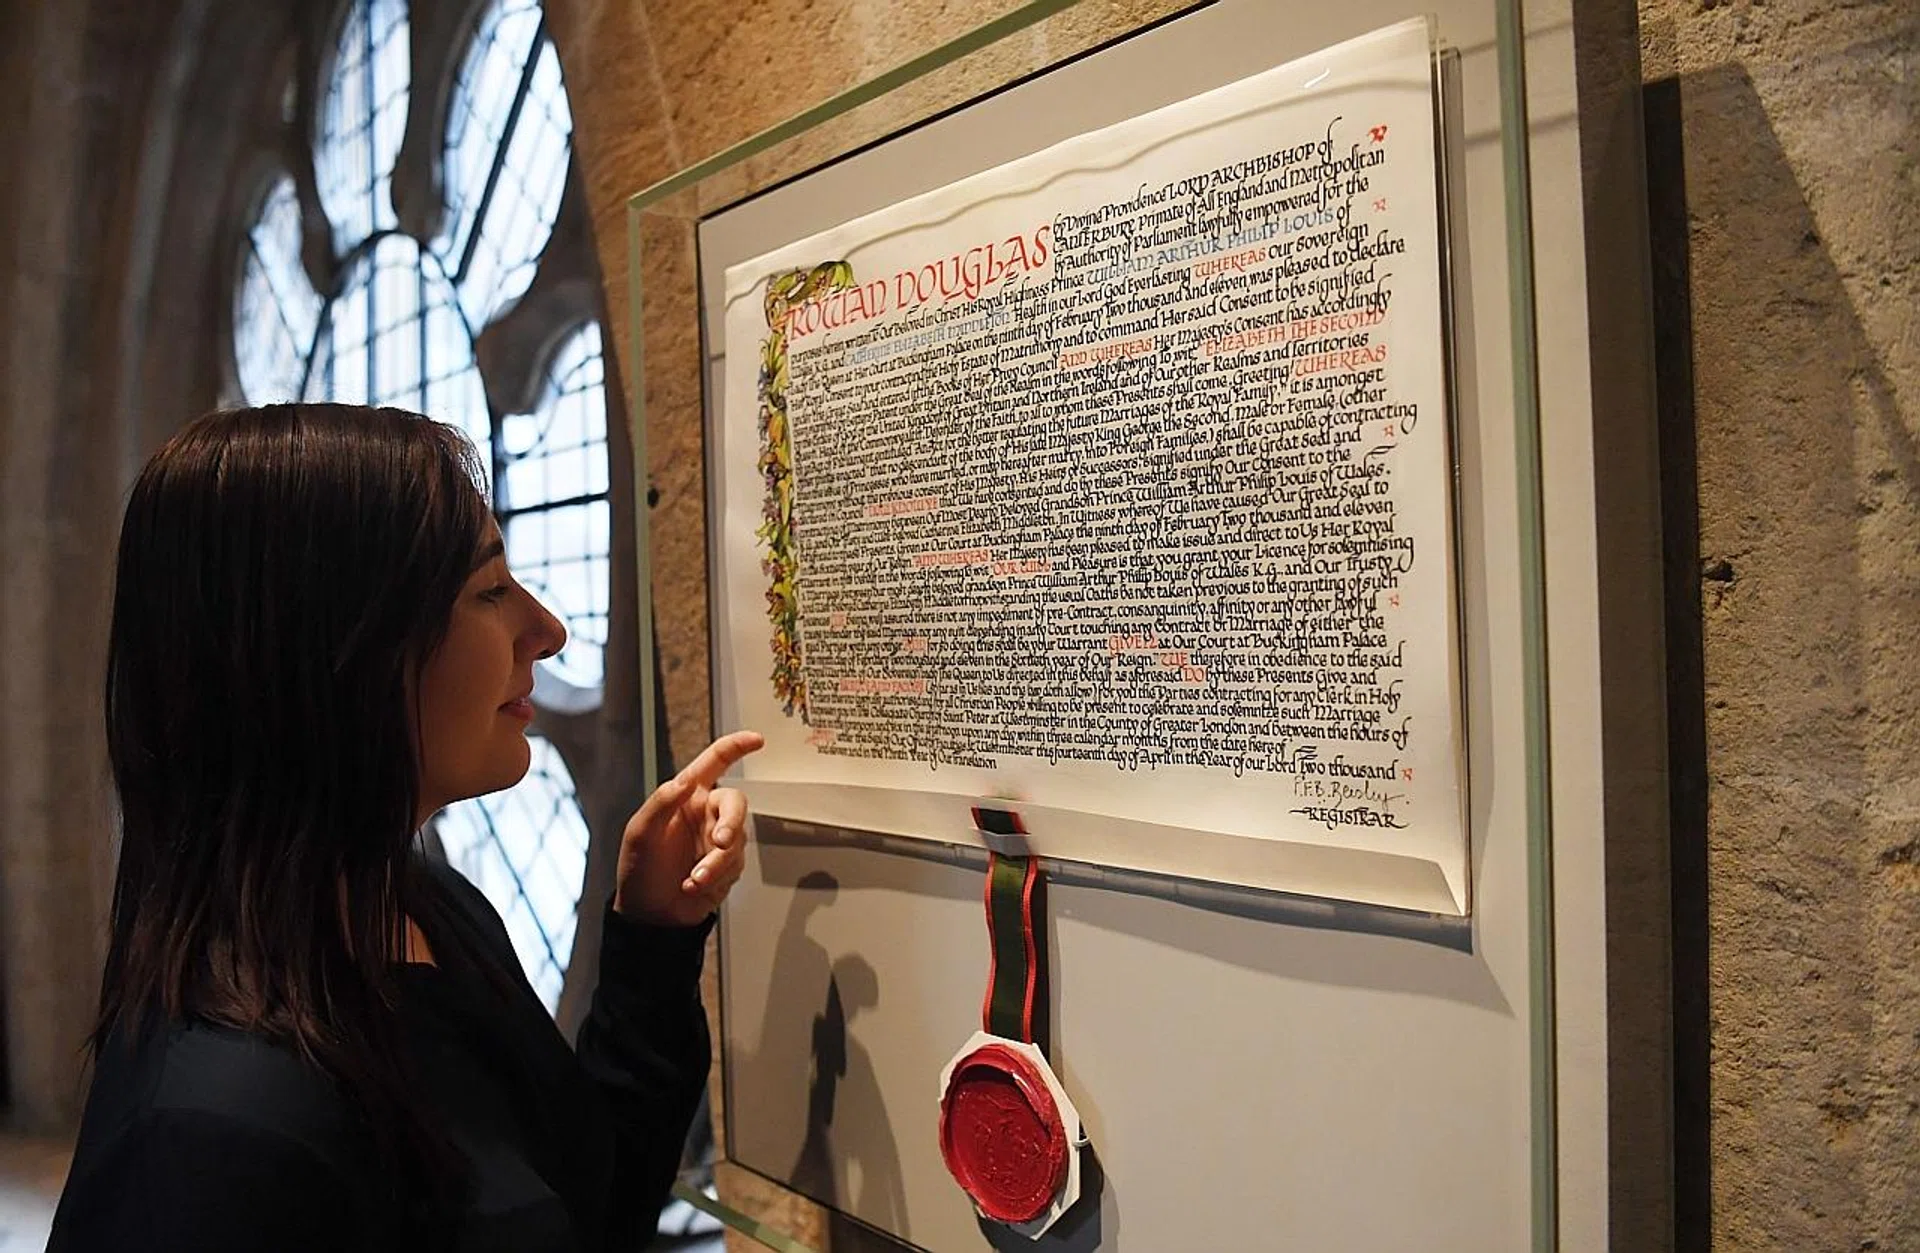 ROWAN DOUGLAS by Divine Providence LORD ARCHBISHOP of
CANTERBURY Primate of All England and Metropolitan
by Authority of Parliament lawfully empowered for the
purposes herein written To Our Beloved in Christ His Royal Highness Prince WILLIAM ARTHUR PHILIP LOUIS of
Wales K.G. and CATHERINE ELIZABETH MIDDLETON Health in our Lord God Everlasting WHEREAS Our Sovereign
Lady the Queen at Her Court at Buckingham Palace on the ninth day of February Two thousand and eleven was pleased to declare
Her Royal Consent to your contracting the Holy Estate of Matrimony and to command Her said Consent to be signified
under the Great Seal and entered in the Books of Her Privy Council AND WHEREAS Her Majesty's Consent has accordingly
Patent under the Great Seal of the Realm in the words following To wit " ELIZABETH THE SECOND
of the United Kingdom of Great Britain and Northern Ireland and of Our other Realms and Territories
Head of the Commonwealth Defender of the Faith, to all to whom these Presents shall come, Greeting! WHEREAS
of Parliament entituled "An Act for the better regulating the future Marriages of the Royal Family," it is amongst
enacted "that no descendant of the body of His late Majesty King George the Second, Male or Female, (other
than the issue of Princesses who have married, or may hereafter marry, into Foreign Families,) shall be capable of contracting
without the previous consent of His Majesty, His Heirs or Successors, signified under the Great Seal and
declared in Council that We have consented and do by these Presents signify Our Consent to the
of Matrimony between Our Most Dearly Beloved Grandson Prince William Arthur Philip Louis of Wales.
and Well-beloved Catherine Elizabeth Middleton. In Witness whereof We have caused Our Great Seal to
Presents. Given at Our Court at Buckingham Palace the ninth day of February Two thousand and eleven
year of Our Reign. AND WHEREAS Her Majesty has been pleased to make issue and direct to Us Her Royal
Warrant in this behalf in the words following To wit "OUR WILL and Pleasure is that you grant your Licence for solemnising
between our most dearly beloved grandson Prince William Arthur Philip Louis of Wales K.G. and Our Trusty
and Well beloved Catherine Elizabeth Middleton notwithstanding the usual Oaths be not taken previous to the granting of such
being well assured there is not any impediment of pre-Contract, consanguinity, affinity or any other lawful
cause to hinder the said Marriage, nor any suit depending in any Court touching any Contract or Marriage of either the
with any other, AND for so doing this shall be your Warrant GIVEN at Our Court at Buckingham Palace
the ninth day of February two thousand and eleven in the Sixtieth year of Our Reign." WE therefore in obedience to the said
of Our Sovereign Lady the Queen to Us directed in this behalf as aforesaid DO by these Presents Give and
(as far as in Us lies and the law doth allow) for you the Parties contracting for any Clerk in Holy
all Christian People willing to be present to celebrate and solemnize such Marriage
in the Collegiate Church of Saint Peter at Westminster in the County of Greater London and between the hours of
in the afternoon upon any day within three calendar months from the date hereof
under the Seal of Our Office of Faculties at Westminster this fourteenth day of April in the Year of our Lord Two thousand
and eleven and in the Ninth Year of Our Translation
REGISTRAR